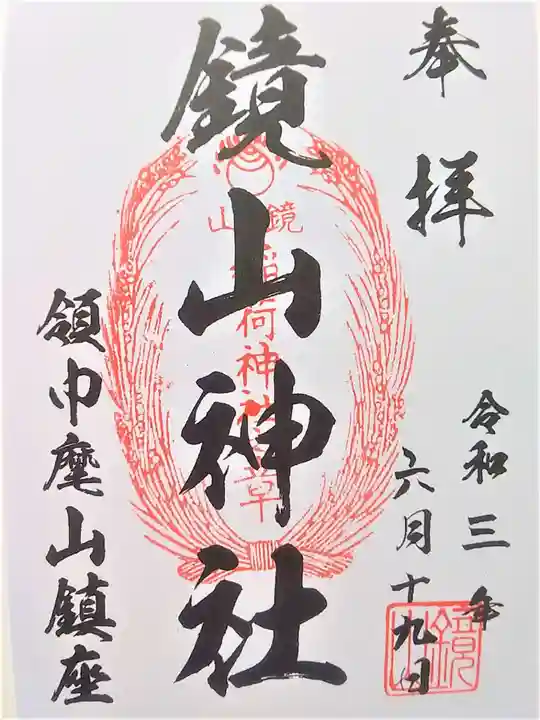 奉拝
令和三年
六月十九日
鏡山神社
領巾麾山鎮座
鏡山
稲荷神社
草
鏡山